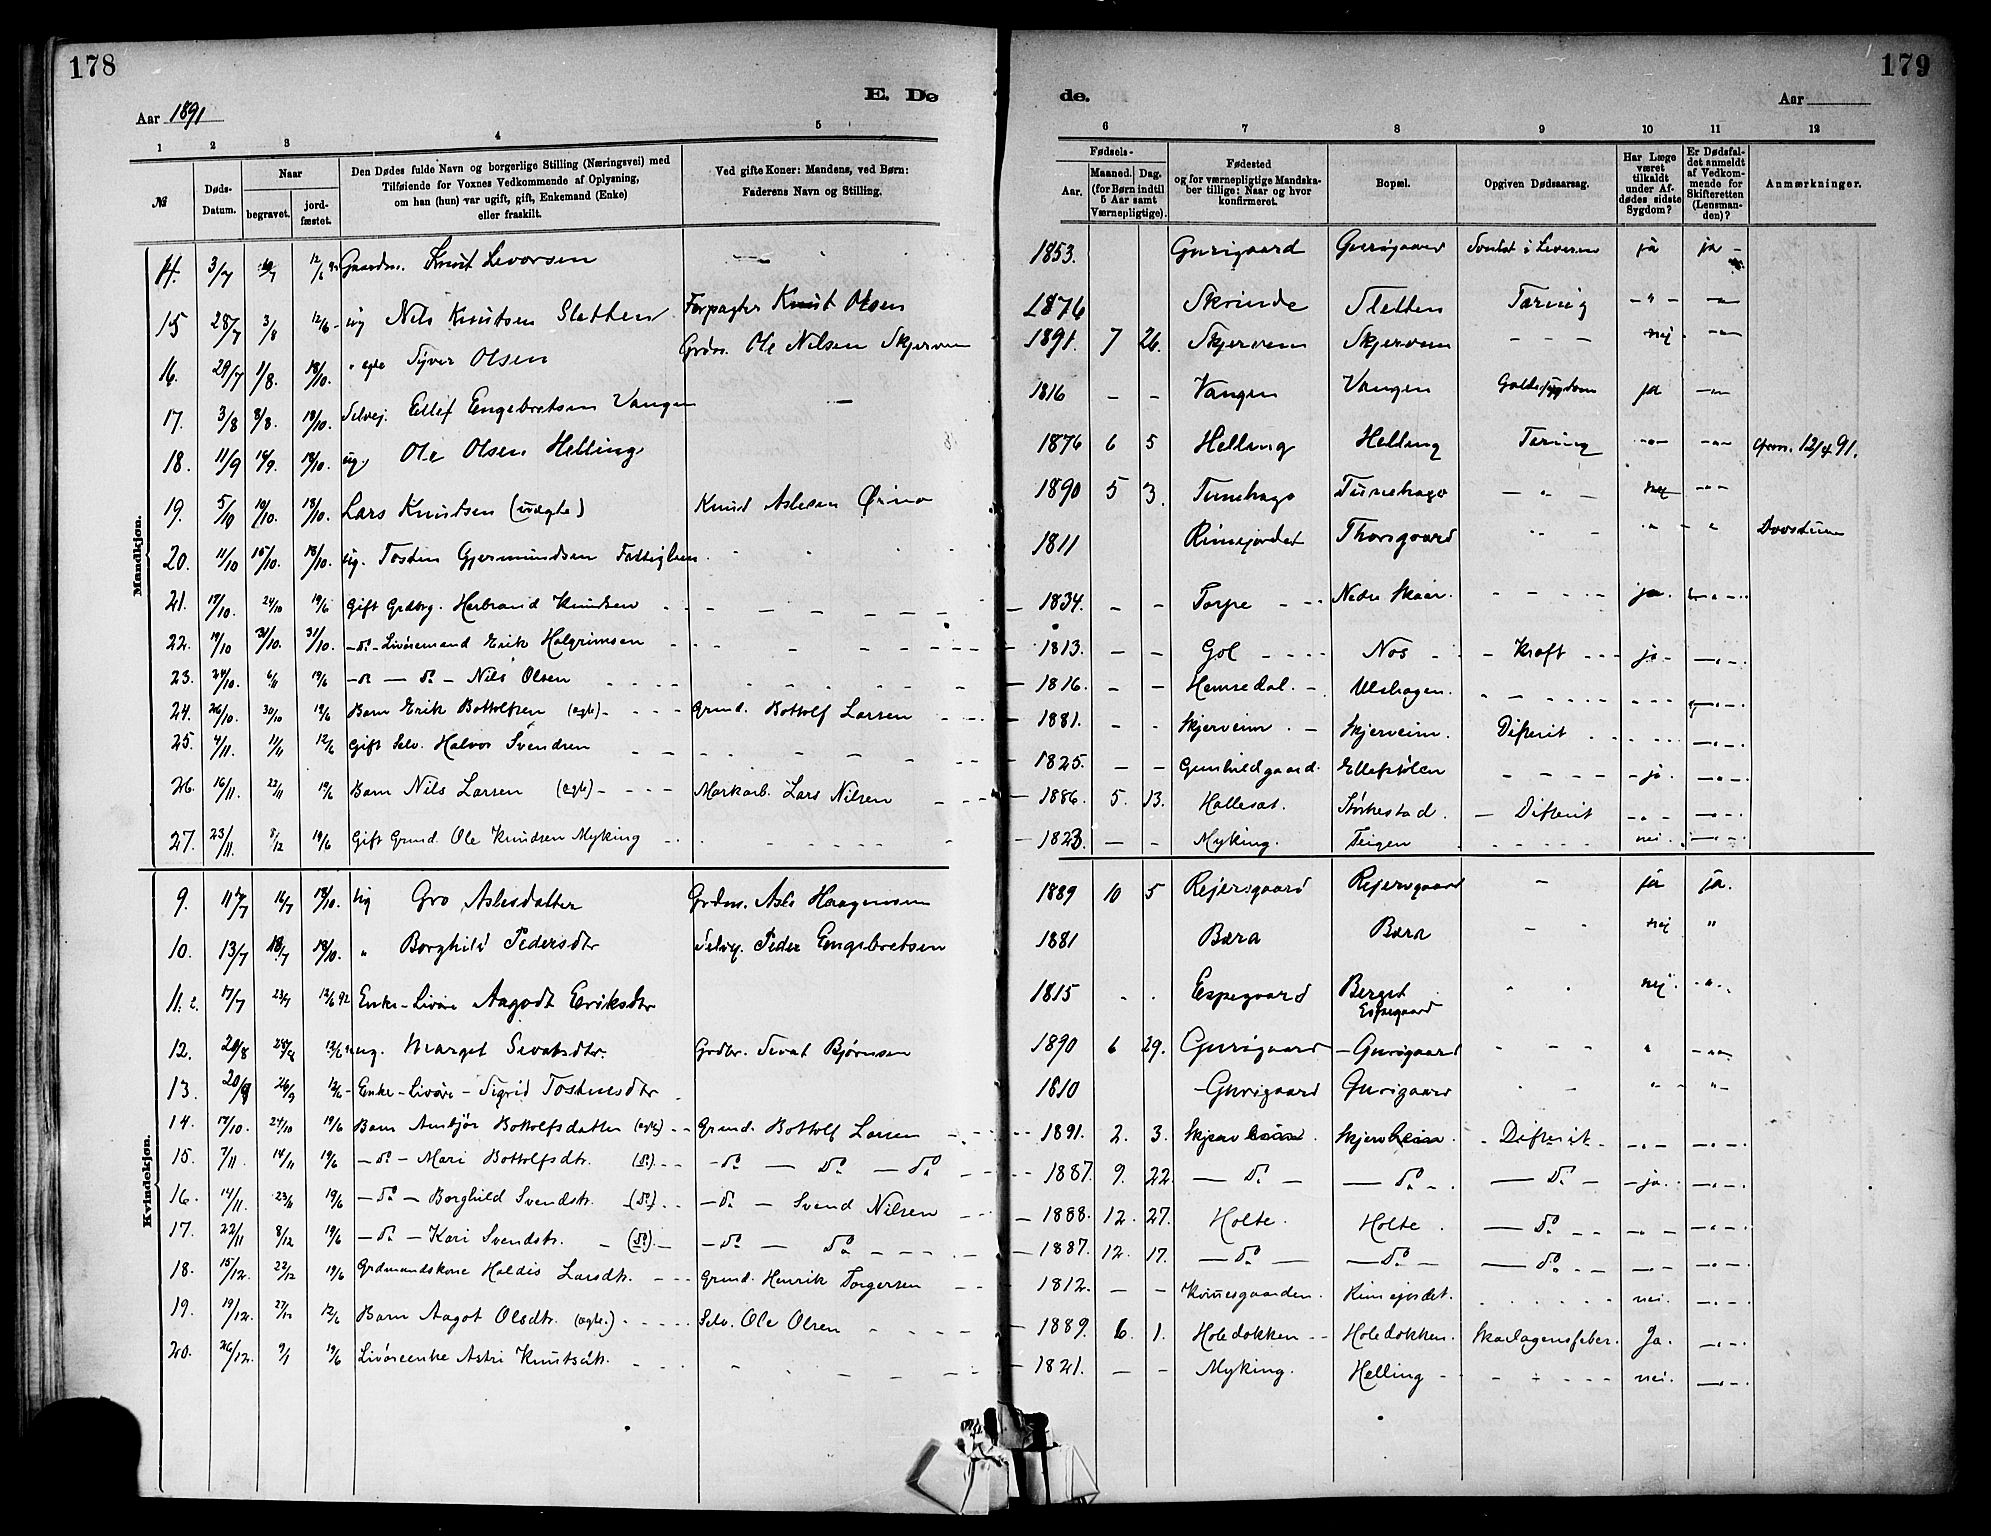 178
E. Dø
Aar 1891
1 2 3 4 5
№
Døds-Datum.
Naar
begravet.
jord-fæstet.
Den Dødes fulde Navn og borgerlige Stilling (Næringsvei) med
Tilføiende for Voxnes Vedkommende af Oplysning,
om han (hun) var ugift, gift, Enkemand (Enke)
eller fraskilt.
Ved gifte Koner: Mandens, ved Børn:
Faderens Navn og Stilling.
Mandkjøn.
14. 3/7 12/6 Gaardm. Knut Levorsen
15 28/7 3/8 12/6 - ug Nils Knutsen Sletten Forpagter Knut Olsen
16. 29/7 1/8. 18/10. " ægte Syver Olsen Grdm. Ole Nilsen Skjervem
17. 3/8 8/8. 18/10. Selvej. Ellef Engebretsen Vangen —
18. 11/9 19/9. 18/10. ug. Ole Olsen Helling
19. 5/10 10/10. 18/10. Lars Knutsen (uægte) Knud Aslesen
20. 11/10 15/10. 18/10. ug. Tosten Gjermundsen Fattiglem
21. 17/10. 24/10 19/6 Gift Grdbrg. Herbrand Knudsen
22. 19/10 31/10. 31/10. -do- Livøremand Erik Halgrimsen
23. 24/10. 6/11 19/6 -do- -do- Nils Olsen
24. 26/10. 30/10 19/6 Barn Erik Bottolfsen (ægte) Grmd. Bottolf Larsen
25. 4/11. 11/11 12/6 Gift Selv. Halvor Svendsen
26. 16/11. 22/11 19/6 Barn Nils Larsen (ægte) Markarb. Lars Nilsen
27. 23/11. 8/12 19/6 Gift Grmd. Ole Knudsen Myking
Kvindekjøn.
9. 11/7 16/7 18/10. ug Gro Aslesdatter Grdm. Asle Haagensen
10. 13/7 18/7 18/10. " Borghild Pedersdtr Selvej. Peder Engebretsen
11. 17/7 23/7 12/6 92 Enke - Livøre Aagodt Eriksdtr
12. 20/8 12/6 ug. Marget Sevatsdtr. Grdbr. Sevat Bjørnsen
13. 20/9 26/9 12/6 - Enke - Livøre - Sigrid Tostensdtr
14. 17/10. 24/10 19/6 Barn Ambjør Bottolfsdatter (ægte) Grmd. Bottolf Larsen
15. 7/11. 14/11 19/6 -do- Mari Bottolfsdtr. (do) -do- do - do
16. 14/11. 23/11 19/6 -do- Borghild Svendstr. (do) -do- Svend Nilsen
17. 22/11 8/12 19/6 -do- Kari Svendstr. (do) -do- do
18. 15/12. 22/12 19/6 Grdmandskone Haldis Larsdtr. Grmd. Henrik Torgersen
19. 19/12. 12/6 Barn Aagot Olsdtr. (ægte.) Selv. Ole Olsen
20. 26/12. 9/1 19/6 Livøreenke Astri Knutsdtr.
179
de.
Aar
6 7 8 9 10 11 12
Fødsels-
Aar.
Maaned. Dag.
(for Børn indtil
5 Aar samt
Værnepligtige).
Fødested
og for værnepligtige Mandska-
ber tillige: Naar og hvor
konfirmeret.
Bopæl.
Opgiven Dødsaarsag.
Har Læge
været
tilkaldt
under Af-
dødes sidste
Sygdom?
Er Dødsfal-
det anmeldt
af Vedkom-
mende for
Skifteretten
(Lensman-
den)?
Anmærkninger.
1853. Gurigaard Gurigaard i Leveren ja ja -
1876 Skrinde Sletten Tæring - " - - " -
1891. 7 26. Skjervem Skjervem - - - nej. - " -
1816 - - Vangen Vangen ja - " -
1876 6 5 Helling Helling Tæring - " - - " - 12/4 91.
1890 5 3. Tunehagn Tunehagn - " - nej - " -
1811 Rimejordet Thorsgaard " - "
1834. - - Torpe Nedre Skaar. ja. - " -
1813. - - Gol Nos Kræft ja. - " -
1816. - - Hemsedal. Ulshagen. - " -
1881. - - Skjerveim. Skjerveim. Difterit - " -
1825. - - Gunhildgaard. Ellefstølen ja. - " -
1886. 5. 13. Hallesas. Størkestad. Difterit - " - - " -
1823. - - Myking. Teigen nei. - " -
1889 10 5 Rejersgaard Rejersgaard - ja ja.
1881 Bæra Bæra - nej "
1815 Espegaard Berget Espegaard nej. - " -
1890 6 29. Gurigaard - Gurigaard " - " -
1810 - Gurigaard Gurigaard " - " -
1891. 2. 3. Skjerveim. Skjerveim. Difterit - " - - " -
1887. 9. 22. - do - - do - - do - ja. - " -
1888. 12. 27. Holte. Holte. - do - " - - " -
1887. 12. 17. - do - - do - - do - - " - - " -
1812. - - Rimejordet. nei. - " -
1889. 6. 1. Holedokken Holedokken. Skarlagensfeber. Ja. - " -
1821. - - Myking. Helling nei. - " -